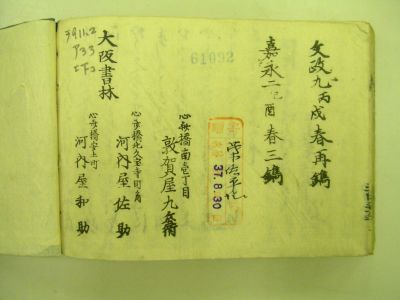 文政九丙戌春再鐫
嘉永二己酉春三鐫
37.8.30
心斎橋南壱丁目
敦賀屋九兵衛
心斎橋北久宝寺町角
河内屋佐助
心斎橋安土町
河内屋和助
大阪書林
61092
911.2